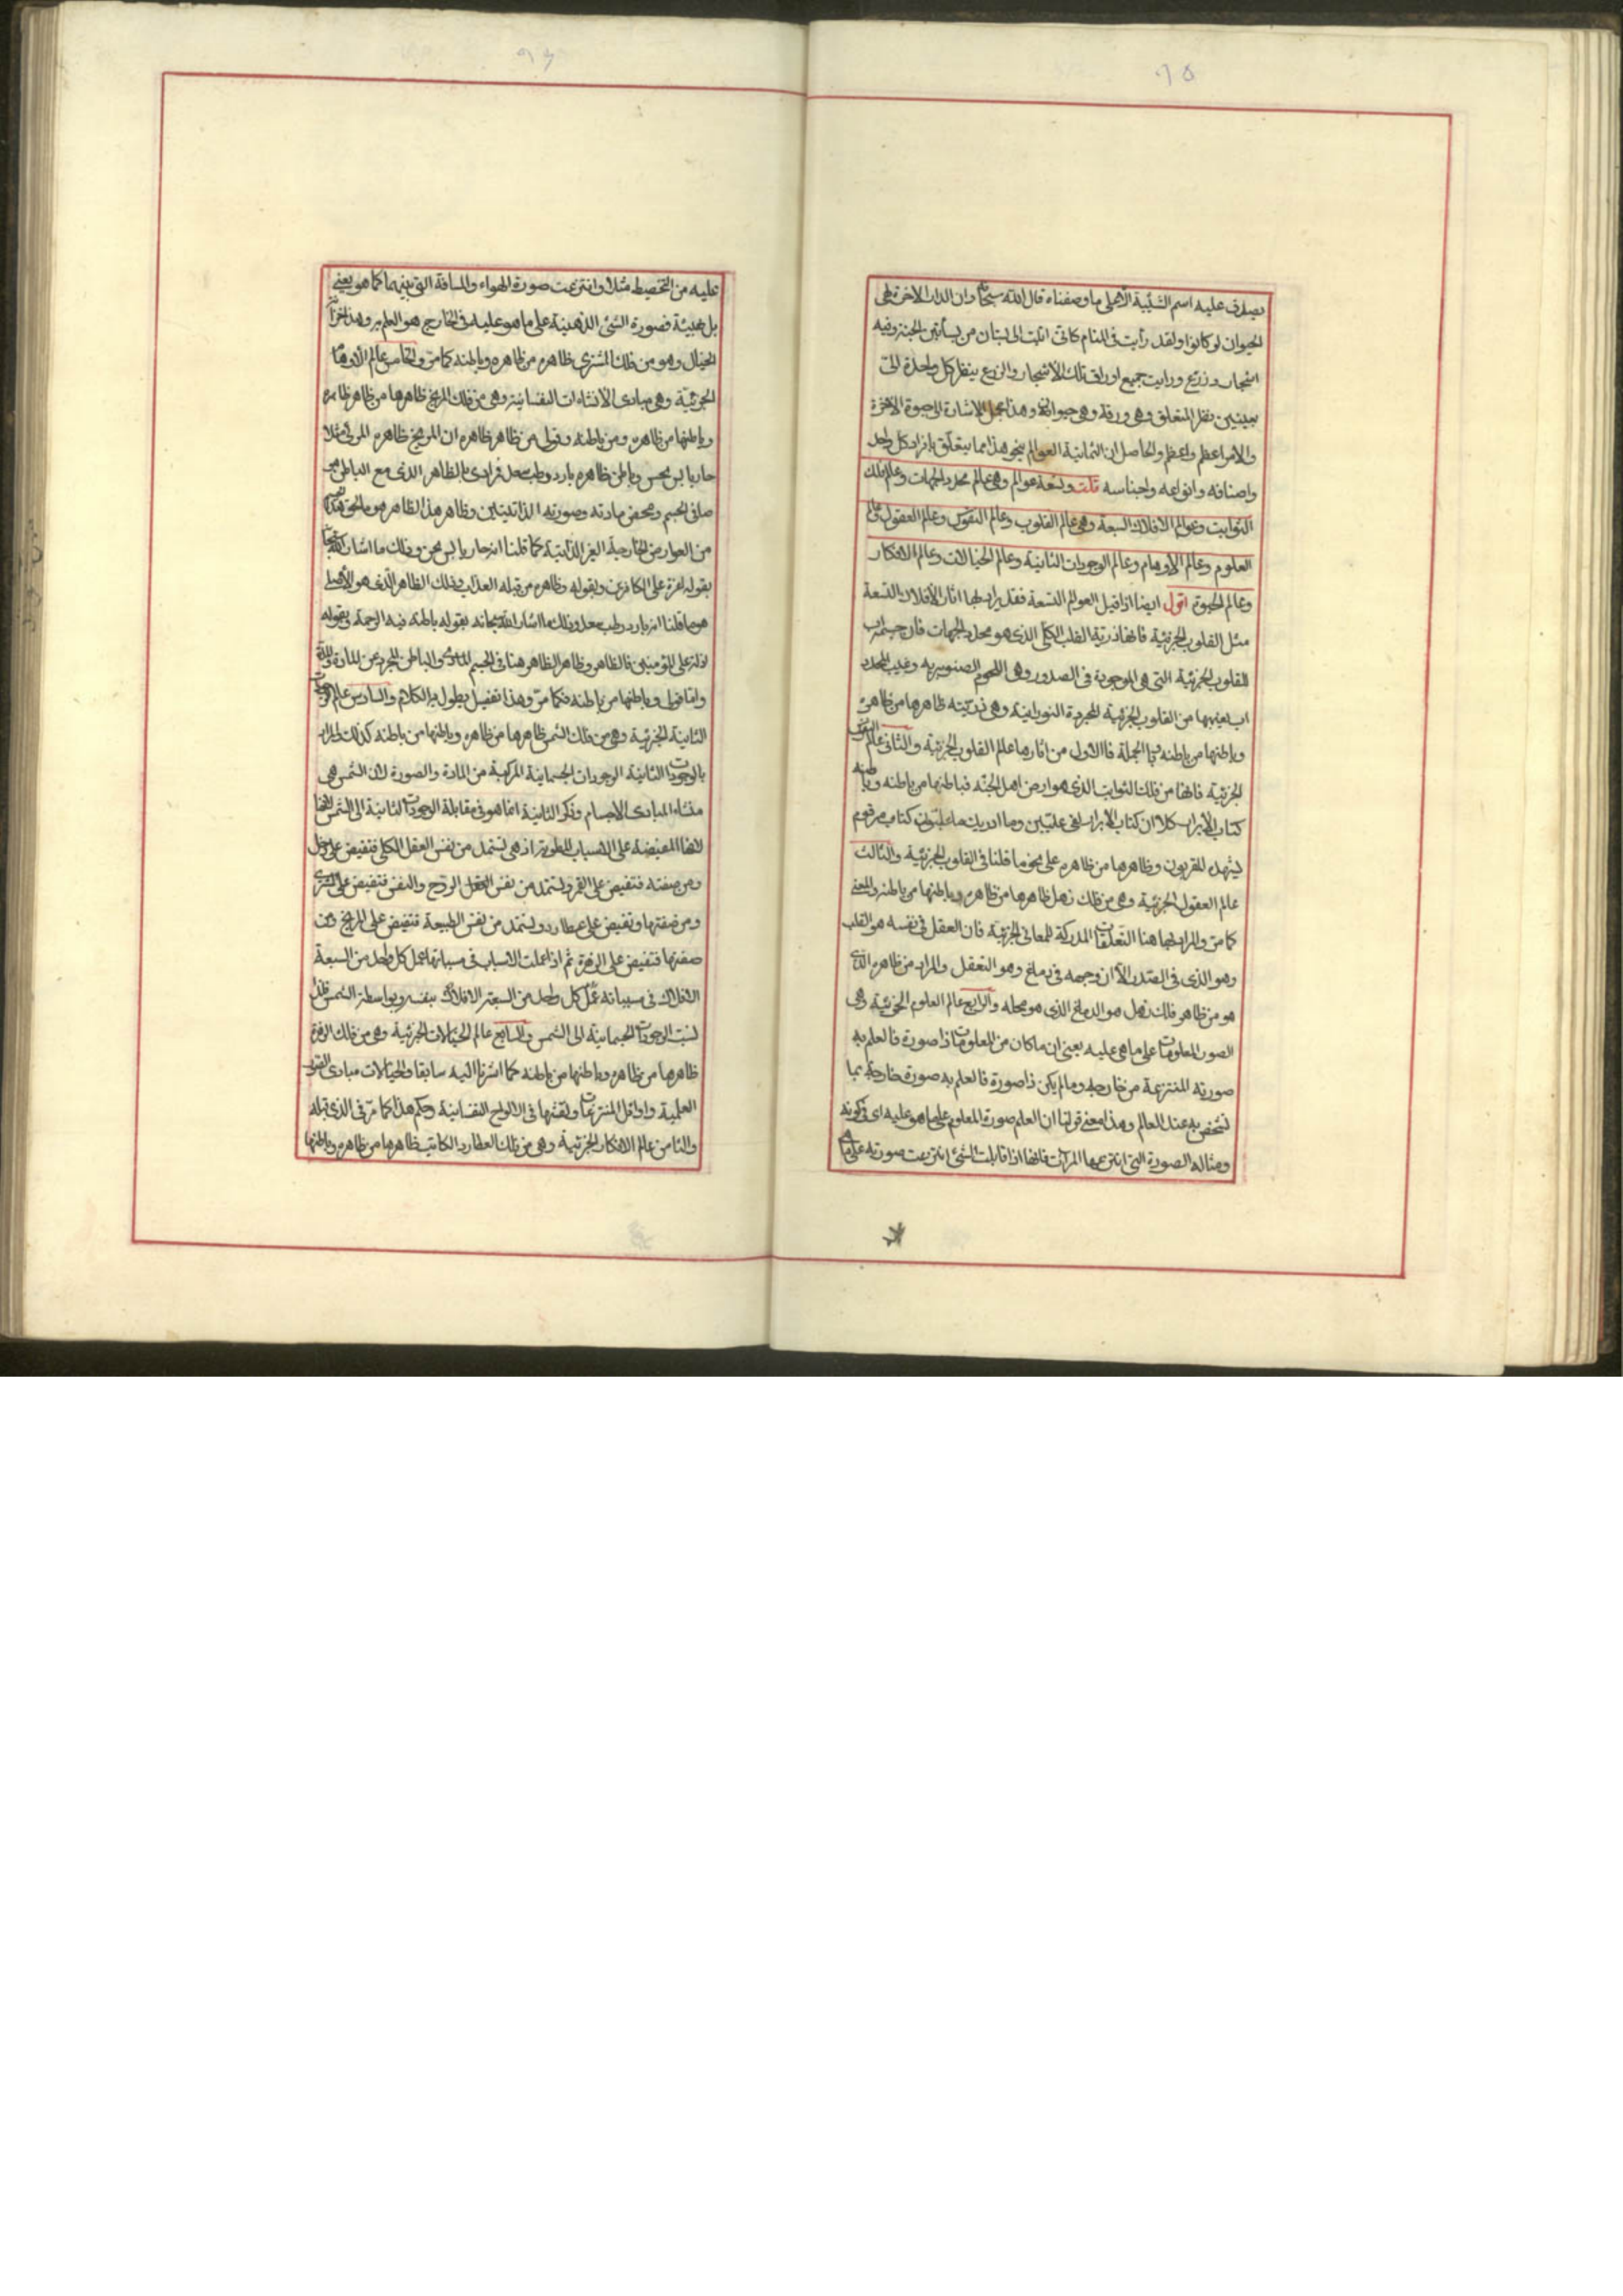 يصدق عليه اسم الشيئية الا على ما وصفناه قال الله سبحانه وان الدار الآخرة لهى
الحيوان لو كانوا ولقد رأيت فى المنام كانى اتيت الى بستان من بساتين الجنة وفيه
اشجار وزرع ورايت جميع اوراق تلك الاشجار والزرع ينظر كل واحدة الىّ
بعينين نظر المتعلق وهى ورقة وهى حيوان وهذا مجمل الاشارة الى حيوة الآخرة
والامر اعظم واعظم والحاصل ان الثمانية العوالم بنحو هذا مما يتعلق بافراد كل واحد
واصنافه وانواعه واجناسه قلت وتسعة عوالم وهى عالم محدد الجهات وعالم فلك
الثوابت وعوالم الافلاك السبعة وهى عالم القلوب وعالم النفوس وعالم العقول وعالم
العلوم وعالم الاوهام وعالم الوجودات الثانية وعالم الخيالات وعالم الافكار
وعالم الحيوة اقول ايضا اذا قيل العوالم التسعة فقد يراد بها اثار الأفلاك التسعة
مثل القلوب الجزئية فانها ذرية القلب الكلى الذى هو محدد الجهات فان جسمه اب
للقلوب الجزئية التى هى الموجودة فى الصدور وهى اللحوم الصنوبرية وغيب المحدد
اب لغيبها من القلوب الجزئية المجردة النورانية وهى ذريته ظاهرها من ظاهره
وباطنها من باطنه وبالجملة فالاول من اثارها عالم القلوب الجزئية والثانى عالم النفوس
الجزئية فانها من فلك الثوابت الذى هو ارض اهل الجنة فباطنها من باطنه وباطنه
كتاب الابرار كلا ان كتاب الابرار لفى عليين وما ادريك ما عليون كتاب مرقوم
يشهده المقربون وظاهرها من ظاهره على نحو ما قلنا فى القلوب الجزئية والثالث
عالم العقول الجزئية وهى من فلك زحل ظاهرها من ظاهره وباطنها من باطنه والمعنى
كما مر والمراد بها هنا التعلقات المدركة للمعانى الجزئية فان العقل فى نفسه هو القلب
وهو الذى فى الصدر الا ان وجهه فى دماغ وهو التعقل والمراد من ظاهره الذى
هو من ظاهر فلك زحل هو الدماغ الذى هو محله والرابع عالم العلوم الجزئية وهى
الصور المعلومات على ما هى عليه يعنى ان ما كان من المعلومات ذا صورة فالعلم به
صورته المنتزعة من خارجه وما لم يكن ذا صورة فالعلم به صورة خارجة بما
تشخص به عند العالم وهذا معنى قولنا ان العلم صورة المعلوم على ما هو عليه اى فى كونه
ومثاله الصورة التى انتزعها المرآت فانها اذا قابلت الشئ انتزعت صورته على ما هى
عليه من التخطيط مثلا وانتزعت صورة الهواء والمسافة التى بينهما كما هو يعنى
فصورة الشئ الذهنية على ما هو عليه فى الخارج هو العلم به وهذا
الخيال وهو من فلك المشترى ظاهره من ظاهره وباطنه كما مر والخامس عالم الأوهام
الجزئية وهى مبادى الأنشاءات النفسانية وهى من فلك المريخ ظاهرها من ظاهر ظاهره
وباطنها من ظاهره ومن باطنه وقولى من ظاهر ظاهره ان المريخ ظاهره المرئى مثلا
حار يابس نحس وباطن ظاهره بارد رطب سعد فمرادى بالظاهر الذى مع الباطن
صافى الجسم ومحض مادته وصورته الذاتيتين وظاهر هذا الظاهر هو ما لحق
من العوارض الخارجية الغير الذاتية كما قلنا انه حار يابس نحس وذلك ما اشار اليه سبحانه
بقوله اعزة على الكافرين وبقوله وظاهره من قبله العذاب وذلك الظاهر الذى هو الأصل
هو ما قلنا انه بارد رطب سعد وذلك ما اشار الله سبحانه بقوله باطنه فيه الرحمة وبقوله
اذلة على المؤمنين فالظاهر وظاهر الظاهر هنا فى الجسم المادى والباطن المجرد عن المادة والمدة
واما قولى وباطنها من باطنه فكما مر وهذا تفصيل يطول به الكلام والسادس عالم الوجودات
الثانية الجزئية وهى من فلك الشمس ظاهرها من ظاهره وباطنها من باطنه كذلك والمراد
بالوجودات الثانية الوجودات الجسمانية المركبة من المادة والصورة لان الشمس هى
منشاء المبادى الاجسام وذكر الثانية انما هو فى مقابلة الوجودات الثانية الى الشمس لانها
لانها المفيضة على الاسباب العلوية اذ هى تستمد من نفس العقل الكلى فتفيض على زحل
ومن صفته فتفيض على القمر وتستمد من نفس العقل الروح والنفس فتفيض على المشترى
ومن صفتها وتفيض على عطارد وتستمد من نفس الطبيعة فتفيض على المريخ ومن
صفتها فتفيض على الزهرة ثم اذا عملت الاسباب فى مسبباتها عمل كل واحد من السبعة
الافلاك فى مسبباته عمل كل واحد من السبعة الافلاك بنفسه وبواسطة الشمس فلذا
نسبت الوجودات الجسمانية الى الشمس والسابع عالم الخيالات الجزئية وهى من فلك الزهرة
ظاهرها من ظاهره وباطنها من باطنه كما اشرنا اليه سابقا والخيالات مبادى الصور
العلمية واوائل المنتزعات ونقشها فى الالواح النفسانية وحكم هذا كما مر فى الذى قبله
والثامن عالم الافكار الجزئية وهى من فلك العطارد الكاتب ظاهرها من ظاهره وباطنها